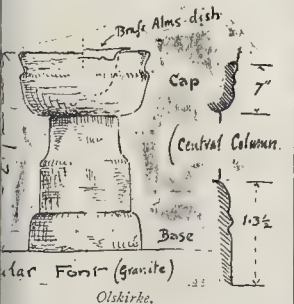 Brass Alms-dish
Cap
7"
Central Column.
1.3½
Base
ular Font (Granite)
Olskirke.